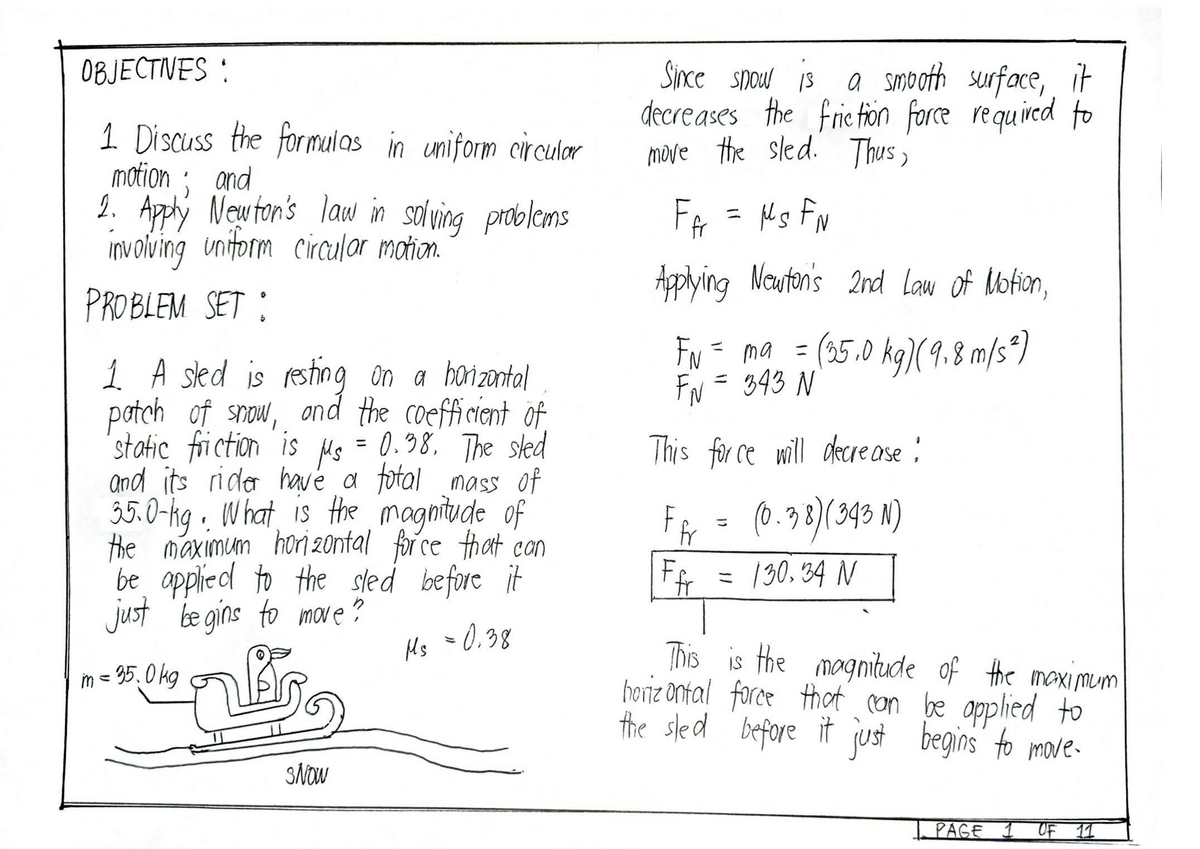 OBJECTIVES :
1. Discuss the formulas in uniform circular
motion ; and
2. Apply Newton's law in solving problems
involving uniform circular motion.
PROBLEM SET :
1. A sled is resting on a horizontal
patch of snow, and the coefficient of
static friction is μs = 0.38. The sled
and its rider have a total mass of
35.0-kg. What is the magnitude of
the maximum horizontal force that can
be applied to the sled before it
just begins to move?
μs = 0.38
m = 35.0 kg
SNOW
Since snow is a smooth surface, it
decreases the friction force required to
move the sled. Thus,
Ffr = μs FN
Applying Newton's 2nd Law of Motion,
FN = ma = (35.0 kg)(9.8 m/s²)
FN = 343 N
This force will decrease :
Ffr = (0.38)(343 N)
Ffr = 130.34 N
This is the magnitude of the maximum
horizontal force that can be applied to
the sled before it just begins to move.
PAGE 1 OF 11